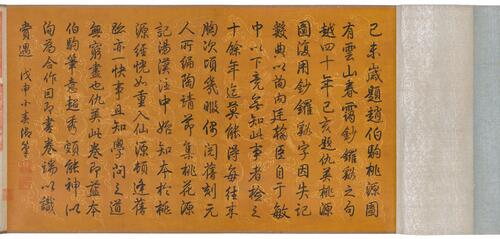 己未歲題趙伯駒桃源圖
有雲山春靄鈔鑼谿之句
越四十年己亥題仇英桃源
圖復用鈔鑼谿字因失記
數典以詢內廷翰臣自于敏
中以下竟無知此事者檢之
十餘年迄莫能得每往來
胸次頃幾暇偶閱舊刻元
人所編陶靖節集桃花源
記湯漢注中始知本於桃
源經恍如重入仙源頓逢舊
亦一快事且知學問之道
無窮盡也仇英此卷即藍本
伯駒筆意超秀頗能神似
洵為合作因即書卷端以識
遇 戊申小春御筆